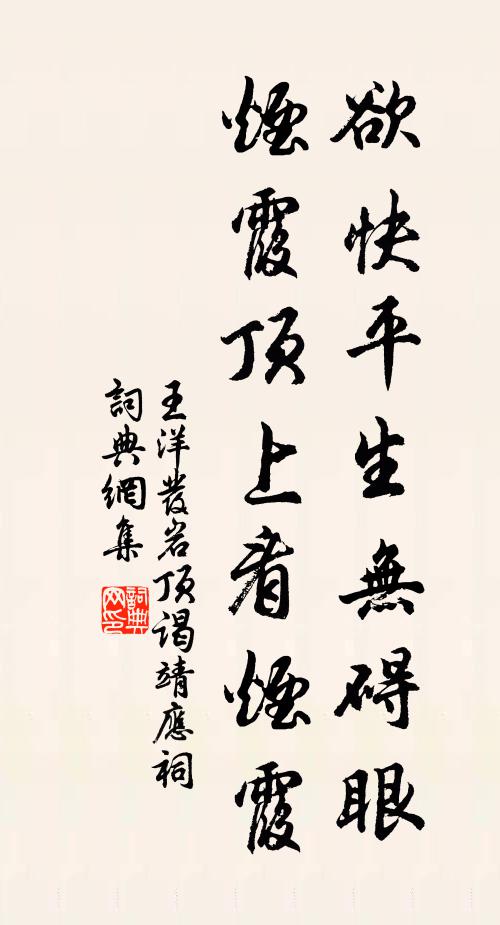 欲快平生無碍眼
煙霞頂上看煙霞
王洋發岩頂谒靖應祠
詞典網集
詞典
网印